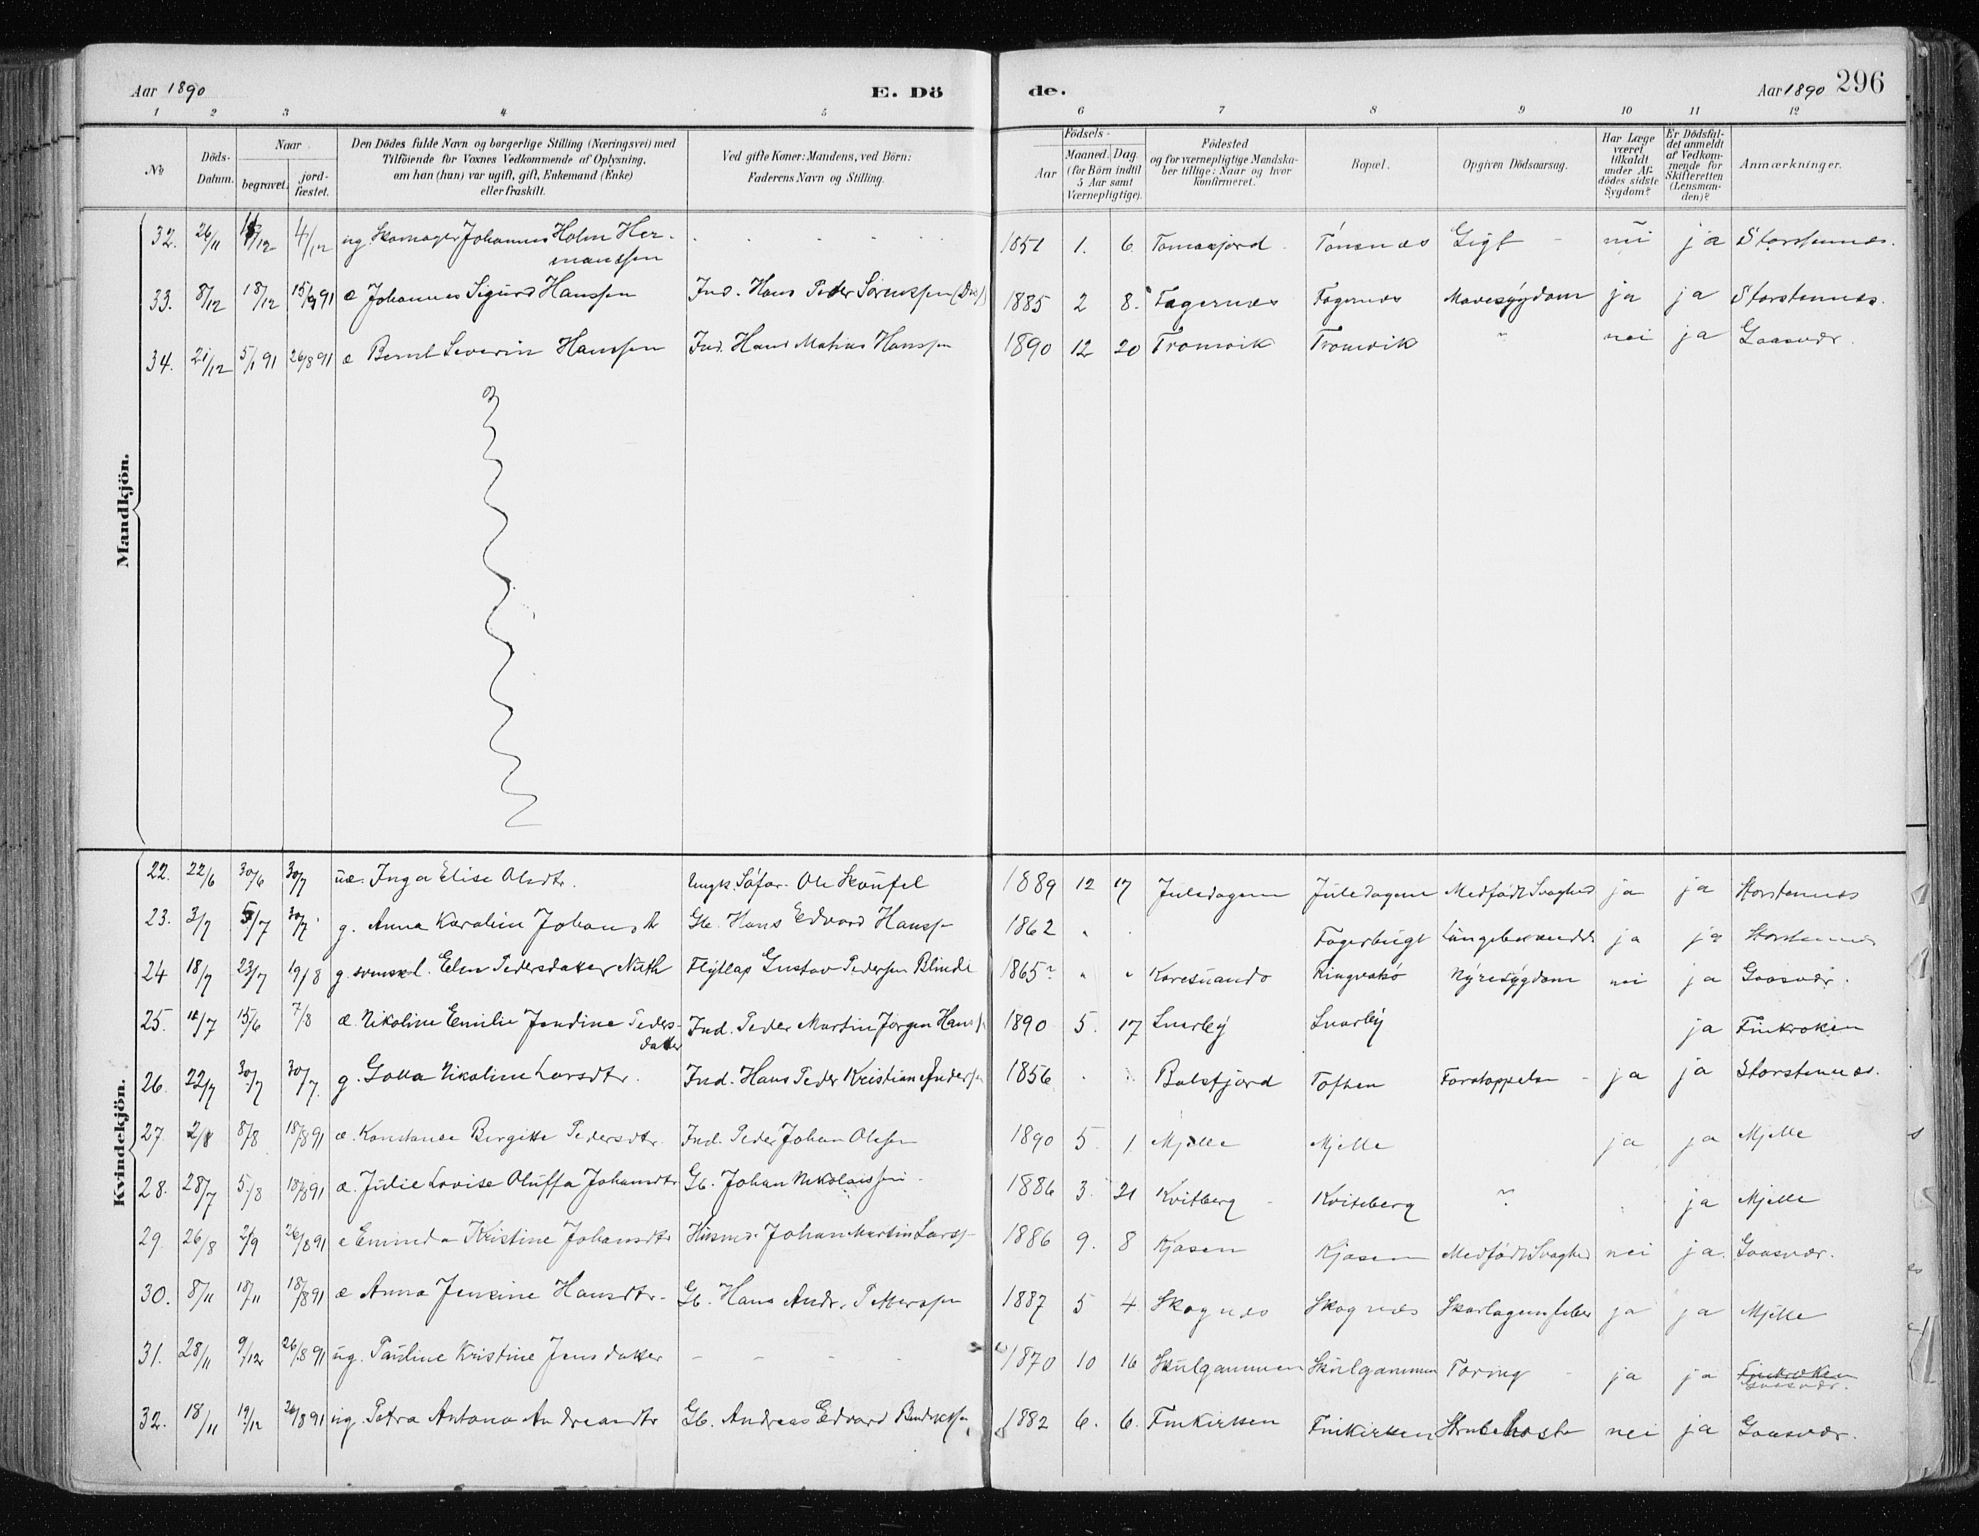 Aar 1890 E. Dö de. Aar 1890 296
1 2 3 4 5 6 7 8 9 10 11 12
No
Döds-Datum.
Naar
begravet.
jord-fæstet.
Den Dödes fulde Navn og borgerlige Stilling (Næringsvei) med
Tilföiende for Voxnes Vedkommende af Oplysning,
om han (hun) var ugift, gift, Enkemand (Enke)
eller fraskilt.
Ved gifte Koner: Mandens, ved Börn:
Faderens Navn og Stilling.
Födsels-
Aar
Maaned. Dag
(for Börn indtil
5 Aar samt
Værnepligtige).
Födested
og for værnepligtige Mandska-
ber tillige: Naar og hvor
konfirmeret.
Bopæl.
Opgiven Dödsaarsag.
Har Læge
været
tilkaldt
under Af-
dödes sidste
Sygdom?
Er Dödsfal-
det anmeldt
af Vedkom-
mende for
Skifteretten
(Lensman-
den)?
Anmærkninger.
Mandkjön.
32. 26/11 /12 4/12 ug Skomager Johannes Holm Her- 1851 1. 6 Tomasjord Tönsnes Gigt nei ja Storstennes.
mansen
33. 8/12 18/12 91 æ Johannes Sigurd Hanssen Ind. Hans Peder Sörenssen 1885 2 8. Fagernes Fagernes Mavesygdom ja ja Storstennes.
34. 21/12 5/1 91 26/8 91 æ Bernt Severin Hanssen Ind. Hans Matias Hanssen 1890 12 20 Tromvik Tromvik " nei ja Gaasvær.
Kvindekjön.
22. 22/6 30/6 30/7 uæ. Inga Elise Olsdtr. Ungk. Ole Skoufel 1889 12 17 Juledagene Juledagene Medfødt Svaghed ja ja Storstennes
23. 3/7 5/7 30/7 g. Anna Karoline Johansdt Gb. Hans Edvard Hanssen 1862 " Fagerbugt Lungebetændelse ja ja Storstennes
24 18/7 23/7 19/8 g. svensk l. Elen Pedersdatter Nuth Flytlap Gustav Pedersen Blinde 1865? " " Karesuando Ringvatsø Nyresygdom nei ja Gaasvær.
25. 12/7 15/6 7/8 æ. Nikoline Emilie Jendine Peders- Ind. Peder Martin Jørgen Hanss. 1890 5. 17 Snarby Snarby ja Finkroken
datter
26. 22/7 30/7 30/7. g. Golla Nikoline Larsdtr. Ind. Hans Peder Kristian Anderss 1856 Balsfjord Toften Forstoppelse ja ja Storstennes.
27. 2/8 8/8 18/8 91 æ. Konstanse Birgitte Pedersdtr. Ind. Peder Johan Olssen 1890 5. 1 Mjelle Mjelle ja ja Mjelle
28. 28/7 5/8 18/8 91 æ. Julie Lovise Oluffa Johansdtr Gb. Johan Nikolaissen 1886 3. 21 Kvitberg Kviteberg ? ja Mjelle
29. 26/8 2/9 26/8 91 æ Eminda Kristine Johansdtr Husmd. Johan Martin Larss 1886 9. 8 Kjosen Kjosen Medfødt Svaghed nei ja. Gaasvær.
30. 8/11 18/11 18/8 91 æ Anna Jensine Hansdtr. Gb. Hans Andr. Petterssen 1887 5 4 Skognes Skognes Skarlagensfeber ja ja Mjelle
31. 28/11 9/12 26/8 91 ug. Pauline Kristine Jensdatter - - - 1870 10 16 Skulgammen Skulgammen Tæring ja ja Finkroken
Gaasvær.
32. 18/11 19/12 26/8 91 ug Petra Antona Andreasdtr Gb. Andreas Edvard Bendiktsen 1882 6. 6. Finkirken Finkirken Strubehoste nei ja Gaasvær.